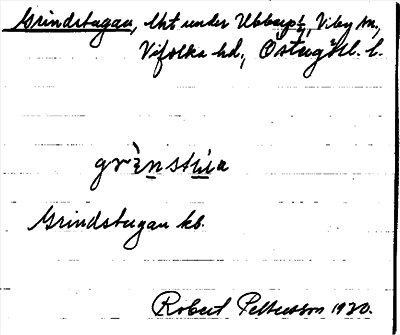 Grindstugan, lht under Ubbarp 1/4, Viby sn.,
Vifolka hd., Östergötl. l.
grìnstùa
Grindstugan kb.
Robert Pettersson 1930.